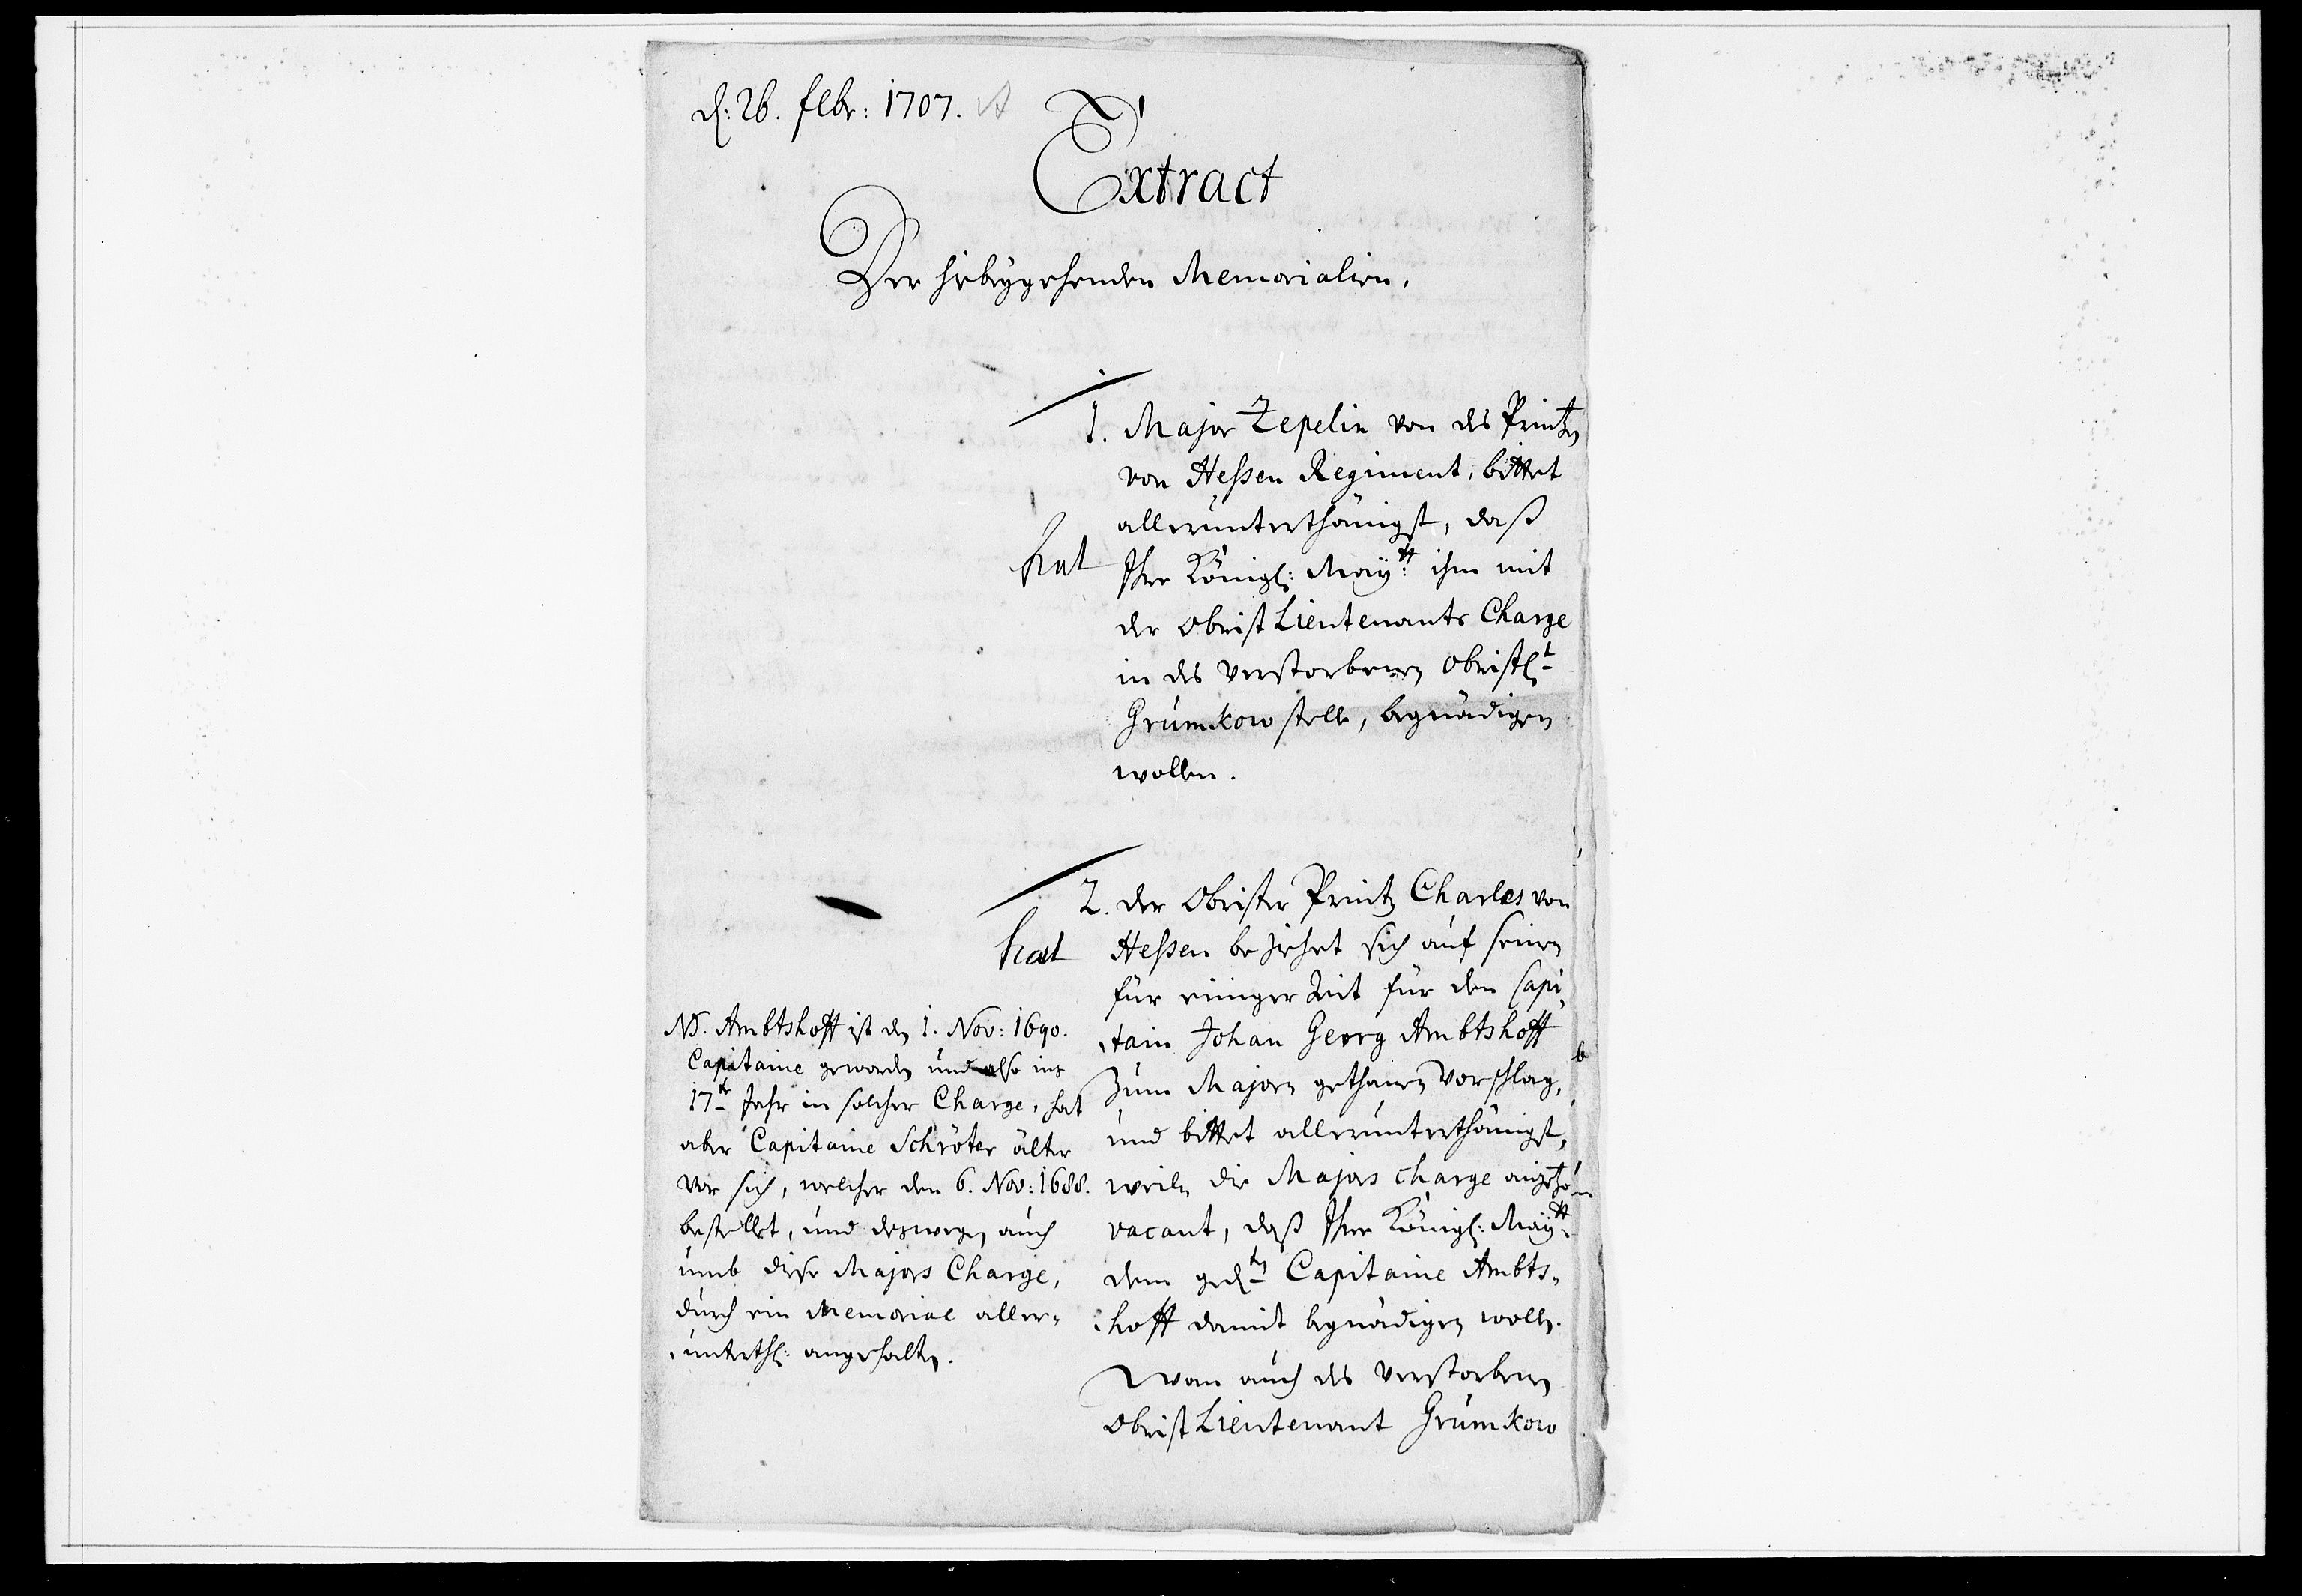 d: 26. febr: 1707.
Extract
Der hiebeygehenden Memorialien.
1. Major Zepelin von des Printzen
von Hessen Regiment, bittet
allerunterthänigst, daß
hat
Ihre Königl: Maytt: ihm mit
der Obrist Lieutenants Charge
in des verstorbenen Obristlt
Grumkow stelle, begnädigen
wollen.
2. der Obrister Printz Charles von
hat
Hessen beziehet sich auf seinen
für einiger Zeit für den Capi-
tain Johan Georg Ambtshoff
zum Majorn gethanen Vorschlag,
und bittet allerunterthänigst,
weiln die Majors charge
vacant, daß Ihre Königl: Maytt:
dem gedten Capitaine Ambts-
hoff damit begnädigen wollen.
Wan auch des verstorbenen
Obrist Lieutenant Grumkow
NB. Ambtshoff ist den 1. Nov: 1690.
Capitaine geworden und also ins
17te Jahr in solcher Charge, hat
aber Capitaine Schröter älter
vor sich, welcher den 6. Nov: 1688.
bestellet, und deswegen auch
umb diese Majors Charge,
durch ein Memorial aller-
unterthl: angehalten.